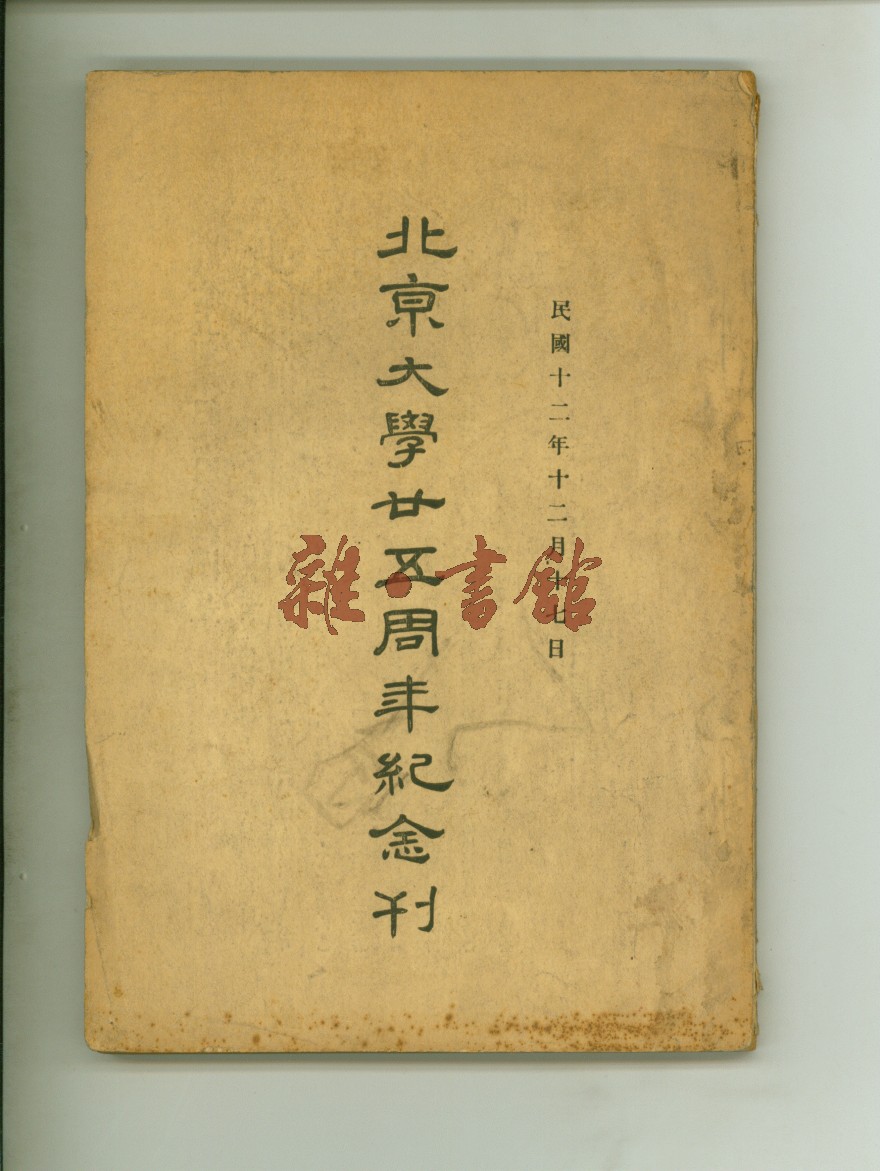 民國十二年十二月十七日
北京大學廿五周年紀念刊
雜·書館